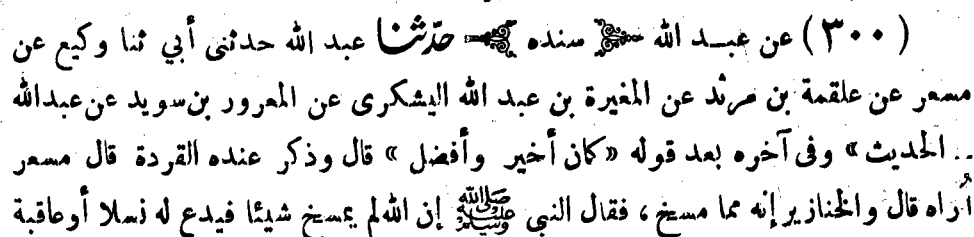 (٣٠٠) عن عبد الله سنده حدثنا عبد الله حدثنى أبي ثنا وكيع عن
مسعر عن علقمة بن مرثد عن المغيرة بن عبد الله اليشكرى عن المعرور بن سويد عن عبد الله
.. الحديث» وفى آخره بعد قوله «كان أخير وأفضل» قال وذكر عنده القردة قال مسعر
أراه قال والخنازير إنه مما مسخ ، فقال النبي ﷺ إن الله لم يمسخ شيئا فيدع له نسلا أوعاقبة